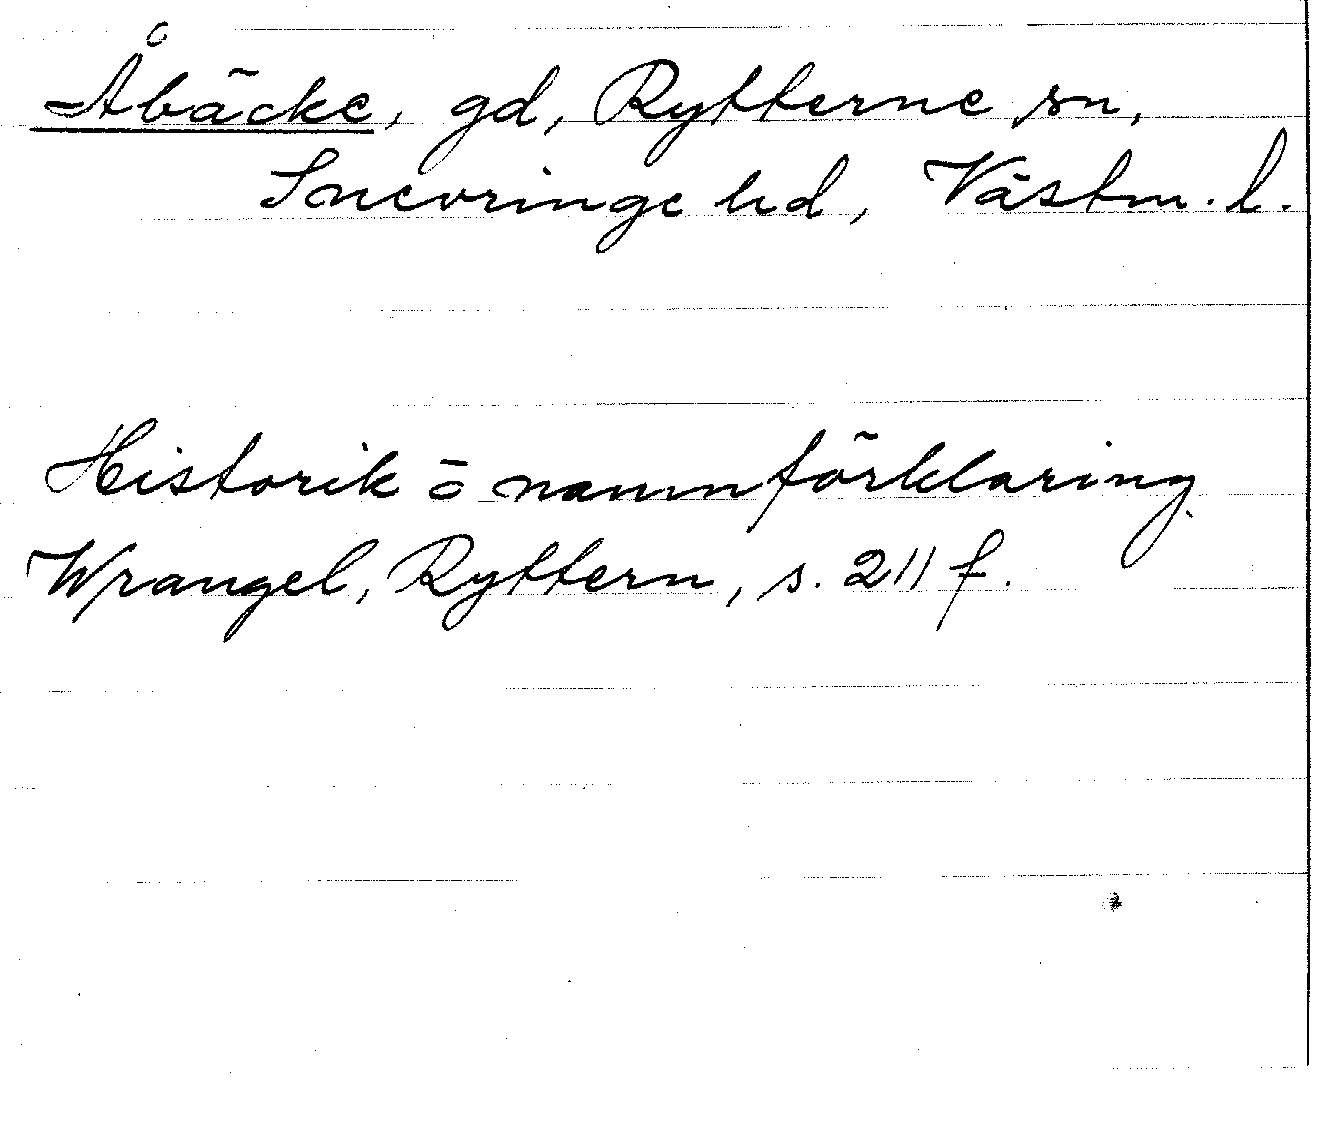 Åbäcke, gd, Rytterne sn,
Snevringe hd, Västm. l.
Historik o namnförklaring
Wrangel, Ryttern, s. 211 f.